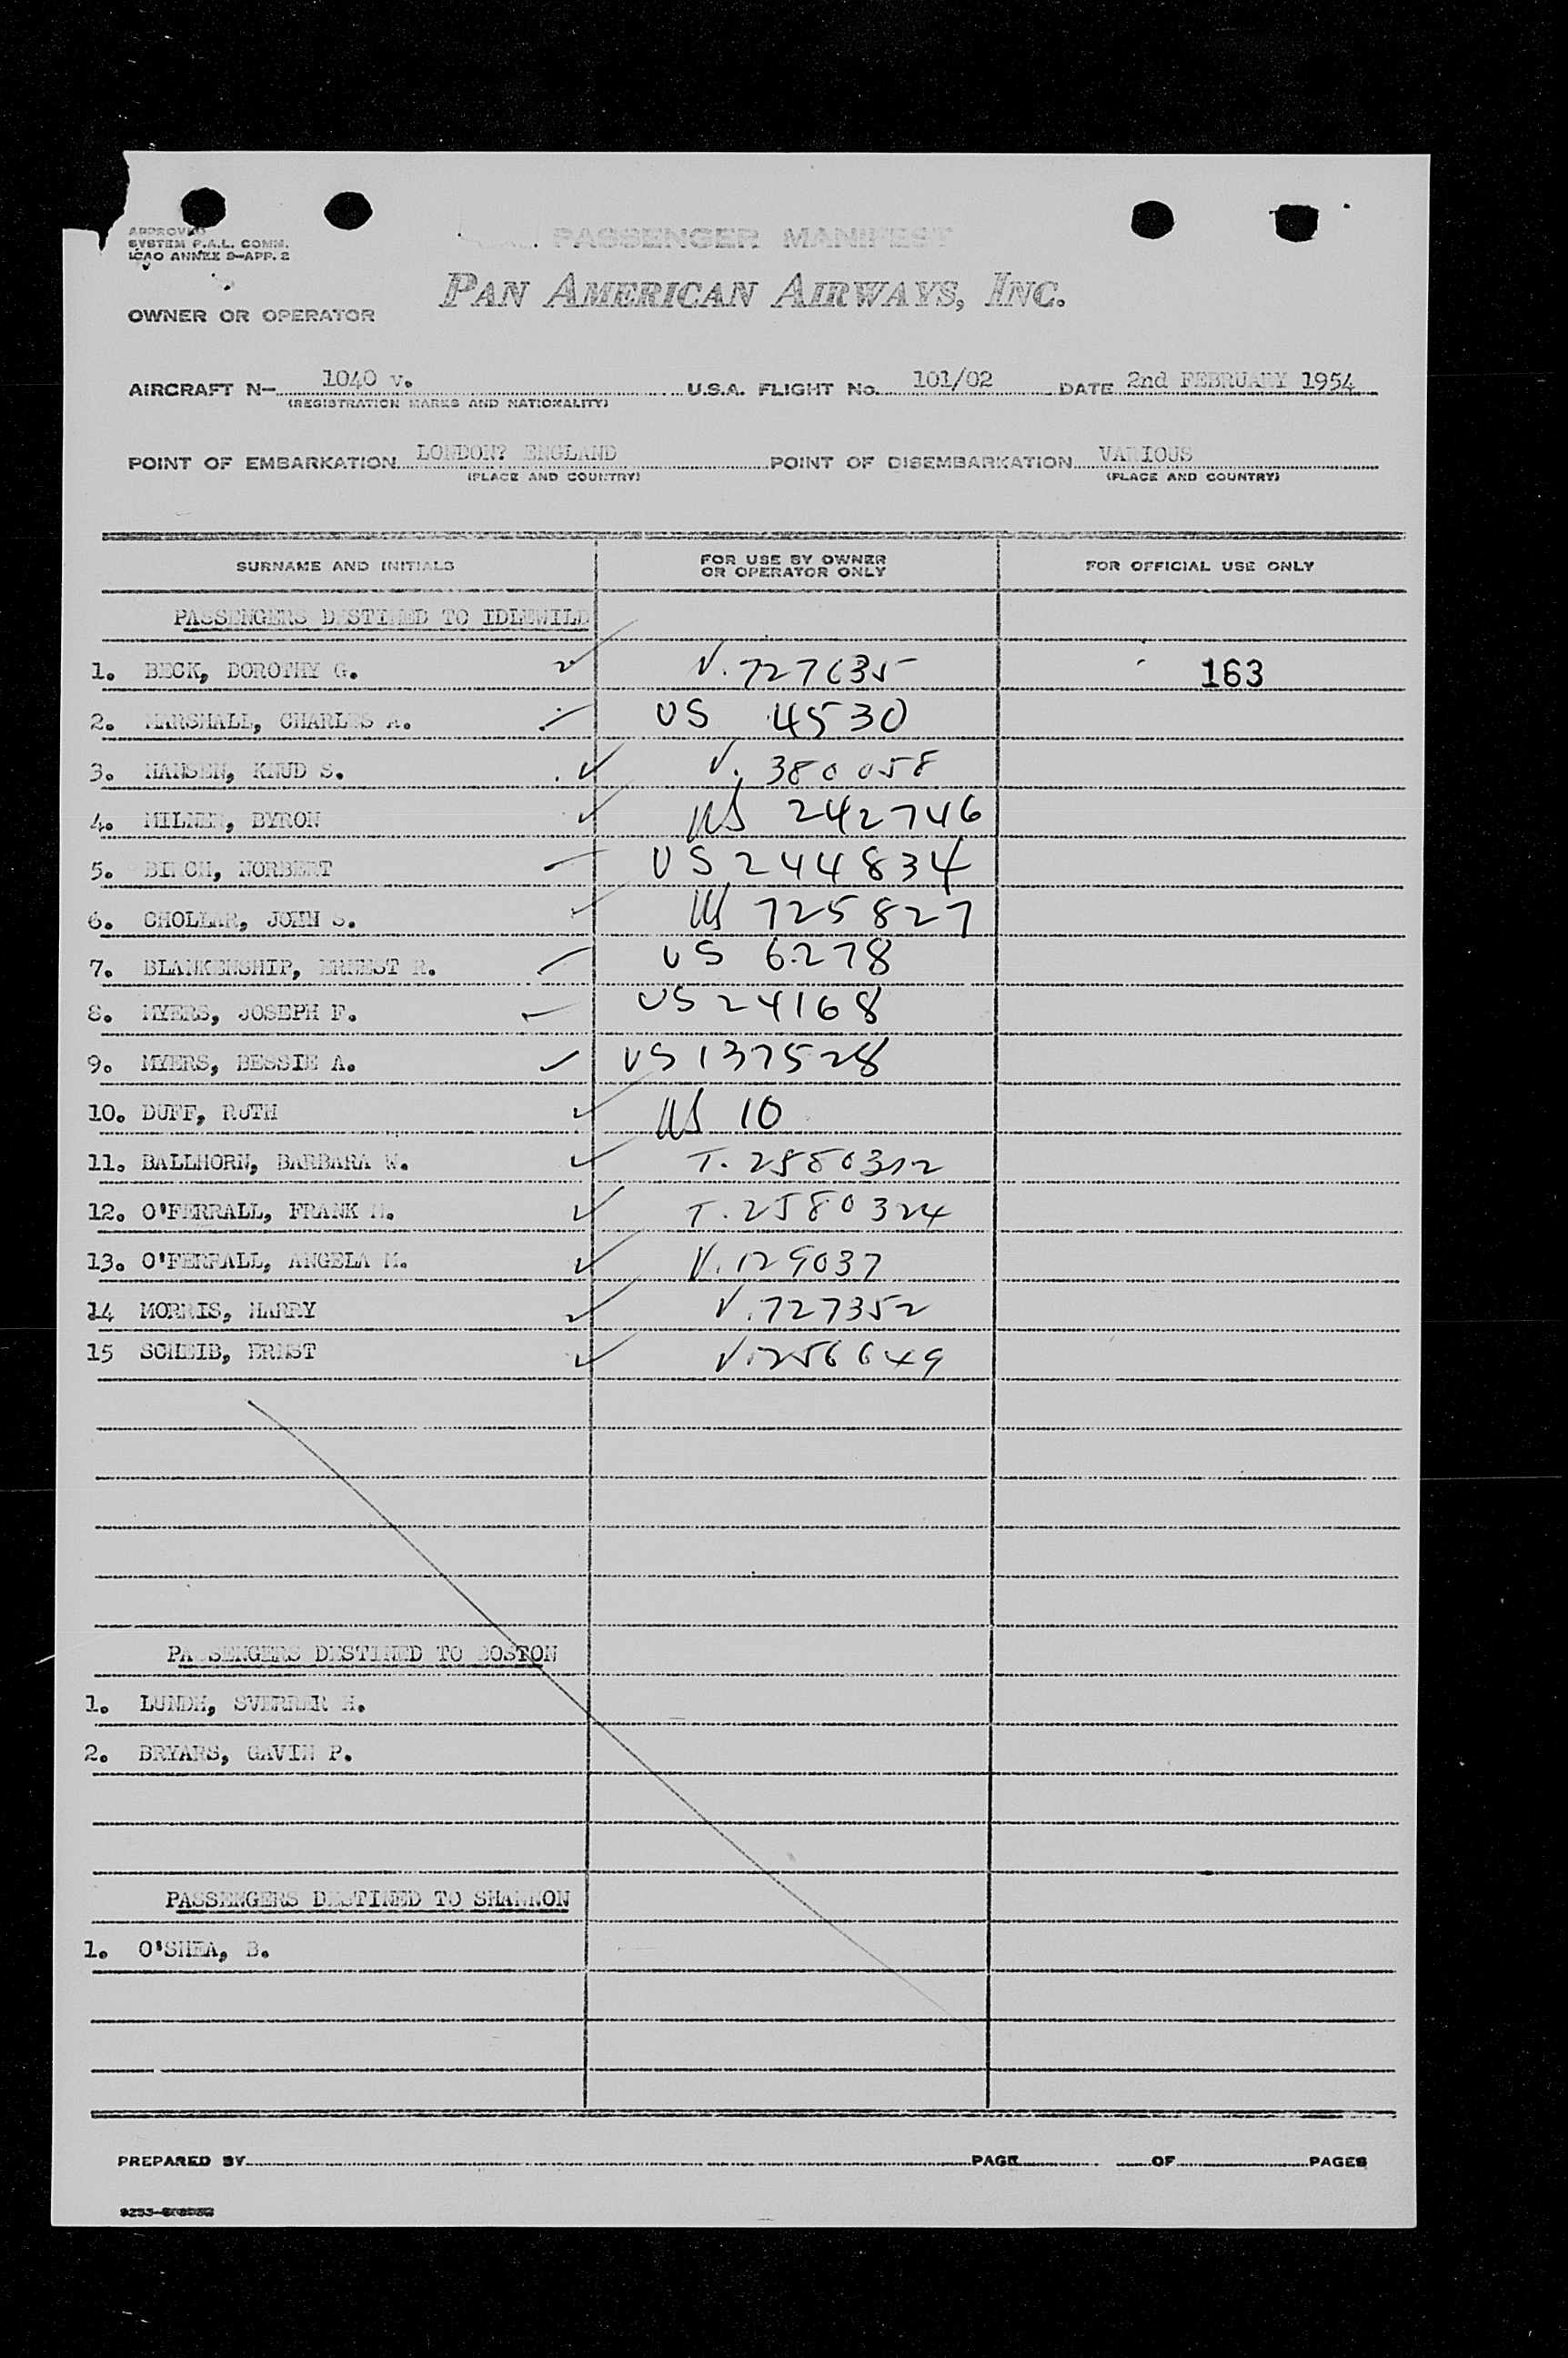 APPROVED
SYSTEM P.A.L. COMM.
ICAO ANNEX 9-APP. 2
PASSENGER MANIFEST
PAN AMERICAN AIRWAYS, INC.
OWNER OR OPERATOR
AIRCRAFT N- 1040 v. U.S.A. FLIGHT No. 101/02 DATE 2nd FEBRUARY 1954
(REGISTRATION MARKS AND NATIONALITY)
POINT OF EMBARKATION LONDON? ENGLAND POINT OF DISEMBARKATION VARIOUS
(PLACE AND COUNTRY) (PLACE AND COUNTRY)
SURNAME AND INITIALS FOR USE BY OWNER OR OPERATOR ONLY FOR OFFICIAL USE ONLY
PASSENGERS DESTINED TO IDLEWILD
1. BECK, DOROTHY G. V. 727635 163
2. MARSHALL, CHARLES A. US 4530
3. HANSEN, KNUD S. V. 380058
4. MILNER, BYRON US 242746
5. BIRCH, NORBERT US 244834
6. CHOLLAR, JOHN S. US 725827
7. BLANKENSHIP, ERNEST R. US 6278
8. MYERS, JOSEPH F. US 24168
9. MYERS, BESSIE A. US 137528
10. DUFF, RUTH US 10
11. BALLHORN, BARBARA W. T. 2580312
12. O'FERRALL, FRANK M. T. 2580324
13. O'FERRALL, ANGELA M. V. 129037
14 MORRIS, HARRY V. 727352
15 SCHEIB, ERNST V. 256649
PASSENGERS DESTINED TO BOSTON
1. LUNDH, SVERRER H.
2. BRYARS, GAVIN P.
PASSENGERS DESTINED TO SHANNON
1. O'SHEA, B.
PREPARED BY PAGE OF PAGES